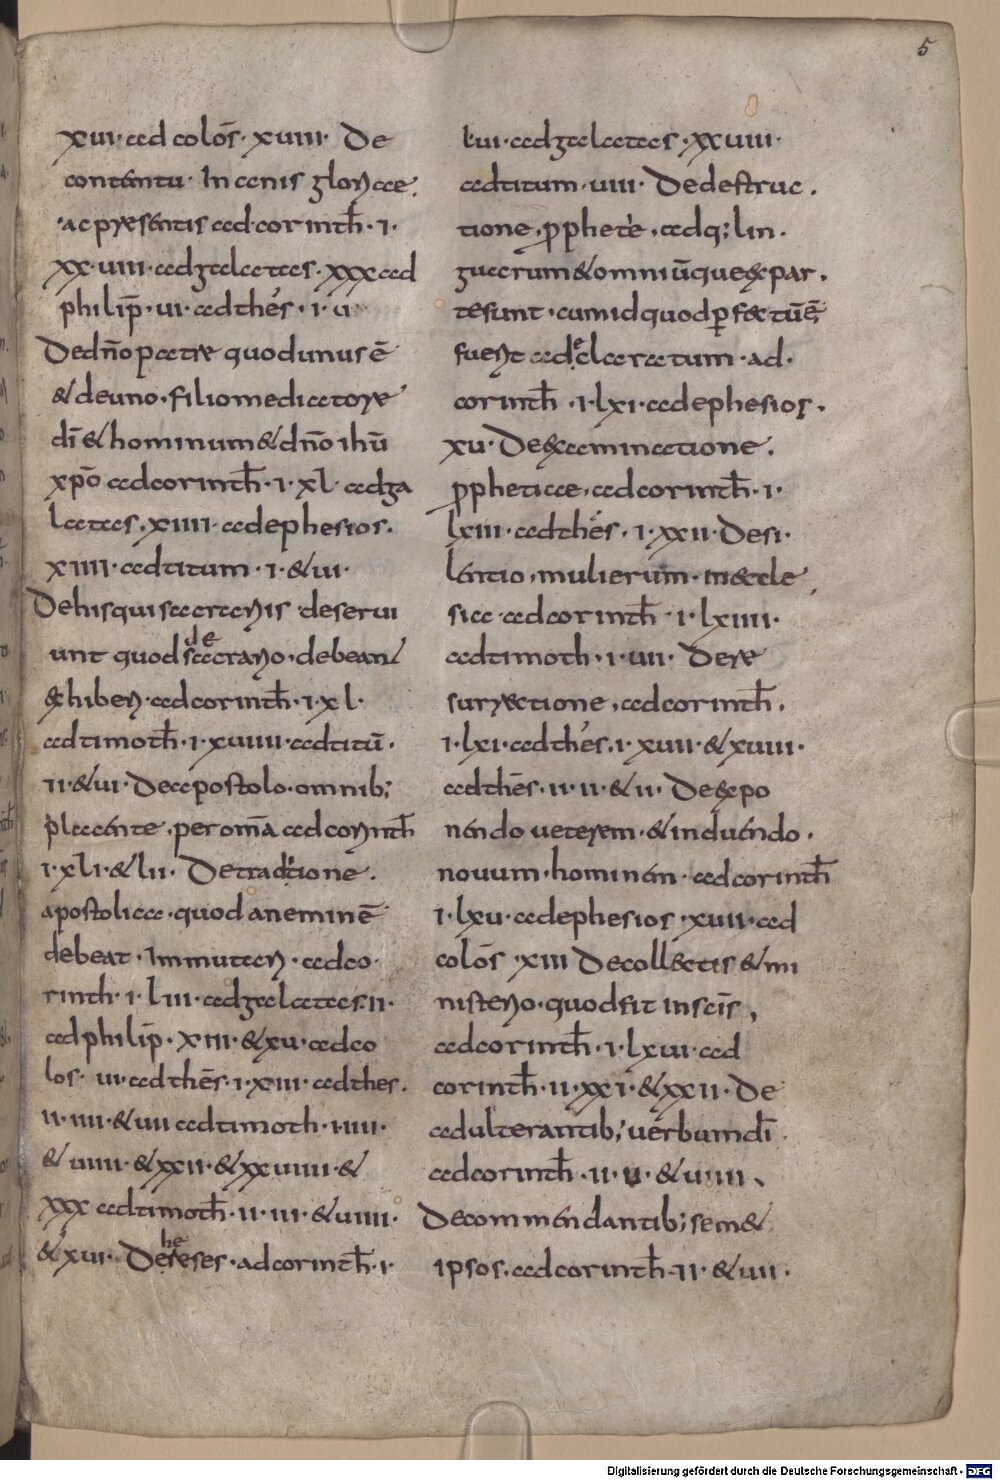 5
xui· ad colos̄· xuiiii· De
contentu· In anis gloriae·
ac presentis ad·corinth̄·i·
xx·uiii·ad galatas·xxx ad
philip̄·ui·ad thes̄·i·u
De dn̄o patre quod unus ē
& de uno·filio mediatore
dī & hominum & dn̄o ihū
xp̄o ad corinth̄·i·xl·ad ga
latas·xiiii·ad ephesios·
xiiii·ad titum·i·&iii·
De his qui sacrariis deserui
de
unt quod sacrario·debeant
exhiberi·ad corinth̄·i·xl·
ad timoth̄·i·xuiiii·ad titū·
ii·&ui· De apostolo·omnib;
placente·per om̄a ad corinth̄
i·xli·&lii· De traditione·
apostolicae·quod a nemine
debeat·Immutari·ad co·
rinth·i·liii·ad galatas·ii·
ad philip̄·xiii·&xu·ad co
los·iii·ad thes̄·i·xiii·ad thes·
ii·iiii·&uii ad timoth·i·iiii·
&uiiii·&xxii·&xxuiiii·&
xxx ad timoth̄·ii·iii·&uiiii·
he
&xui· Dereses·ad corinth̄·i·
lui·ad galatas·xxuiii·
ad titum·uiii· De destruc·
tione·prophete·adq; lin·
guarum & omniū que ex par·
te sunt·cum id quod perfectū ē
e
fuerit ad claratum·ad·
corinth̄·i·lxi·ad ephesios·
xu· De examinatione·
propheticae·ad corinth̄·i·
lxiii·ad thes̄·i·xxii· De si·
lentio·mulierum·in aecle
sia·ad corinth̄·i·lxiiii·
ad timoth·i·uii· De re
surrectione·ad corinth̄·
i·lxi·ad thes̄·i·xuii·&xuiii·
ad thes̄·ii·ii·&ii· De expo
nendo ueterem·& induendo·
nouum·hominem·ad corinth̄
i·lxu·ad ephesios·xuii·ad
colos̄·xiii De collectis & mi
nisterio·quod fit in scīs,
ad corinth̄·i·lxui·ad
corinth̄·ii·xxi·&xxii· De
adulterantib; uerbum dī·
ad corinth̄·ii·u·&uiiii·
De commendantib; sem&
ipsos·ad corinth̄·ii·&uii·
Digitalisierung gefördert durch die Deutsche Forschungsgemeinschaft - DFG